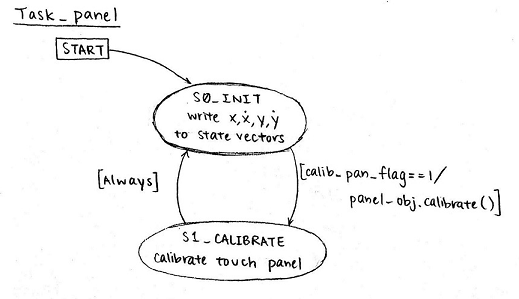 Task_panel
START
S0_INIT
write x, ẋ, y, ẏ
to state vectors
[Always]
[calib_pan_flag==1/
panel_obj.calibrate()]
S1_CALIBRATE
calibrate touch panel